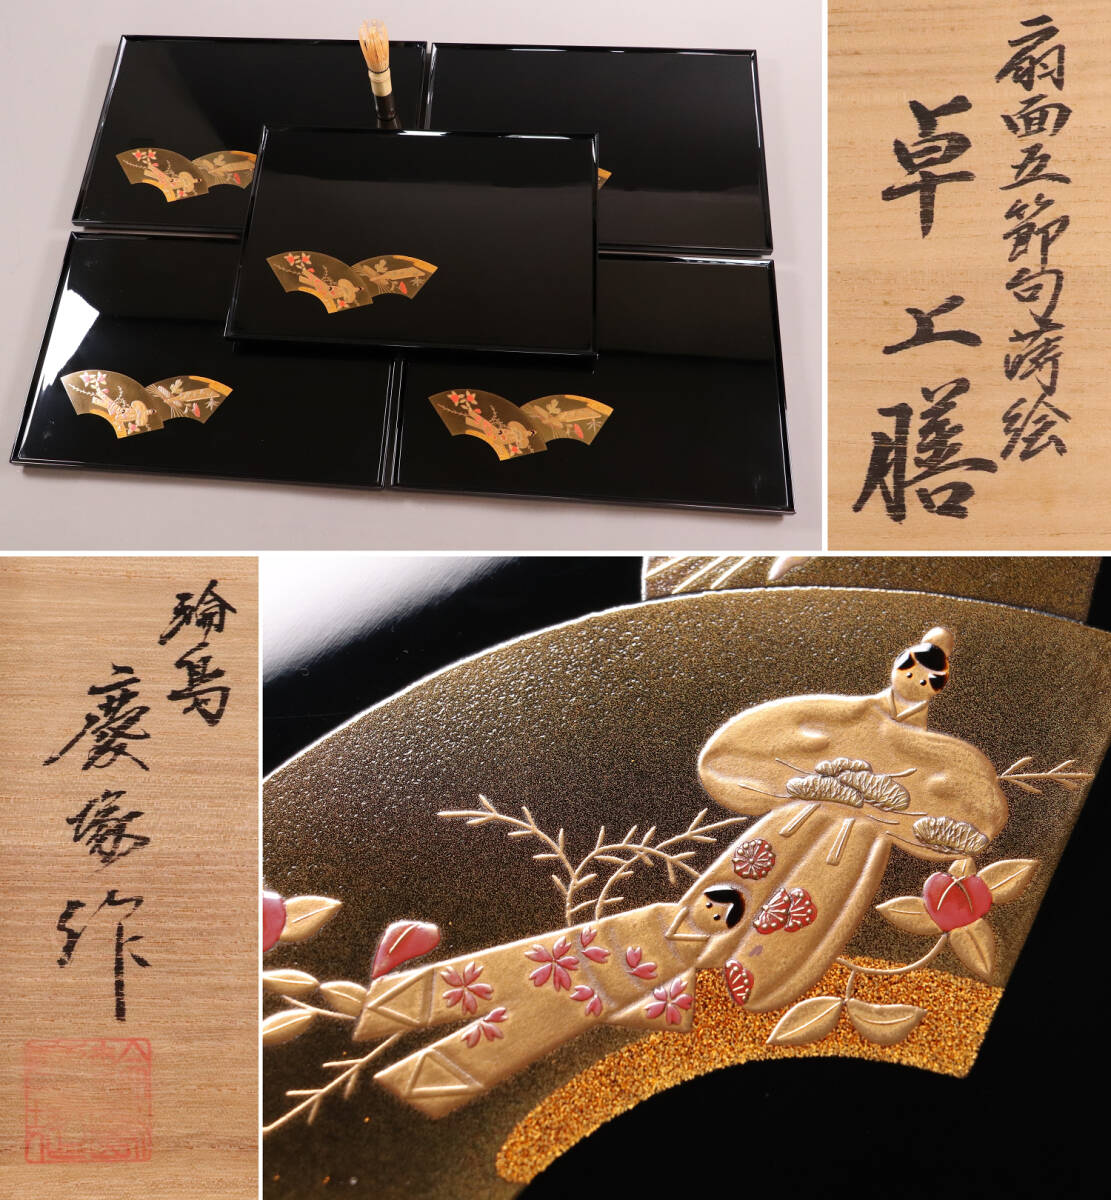 扇面五節句蒔絵
卓上膳
輪島
慶塚作